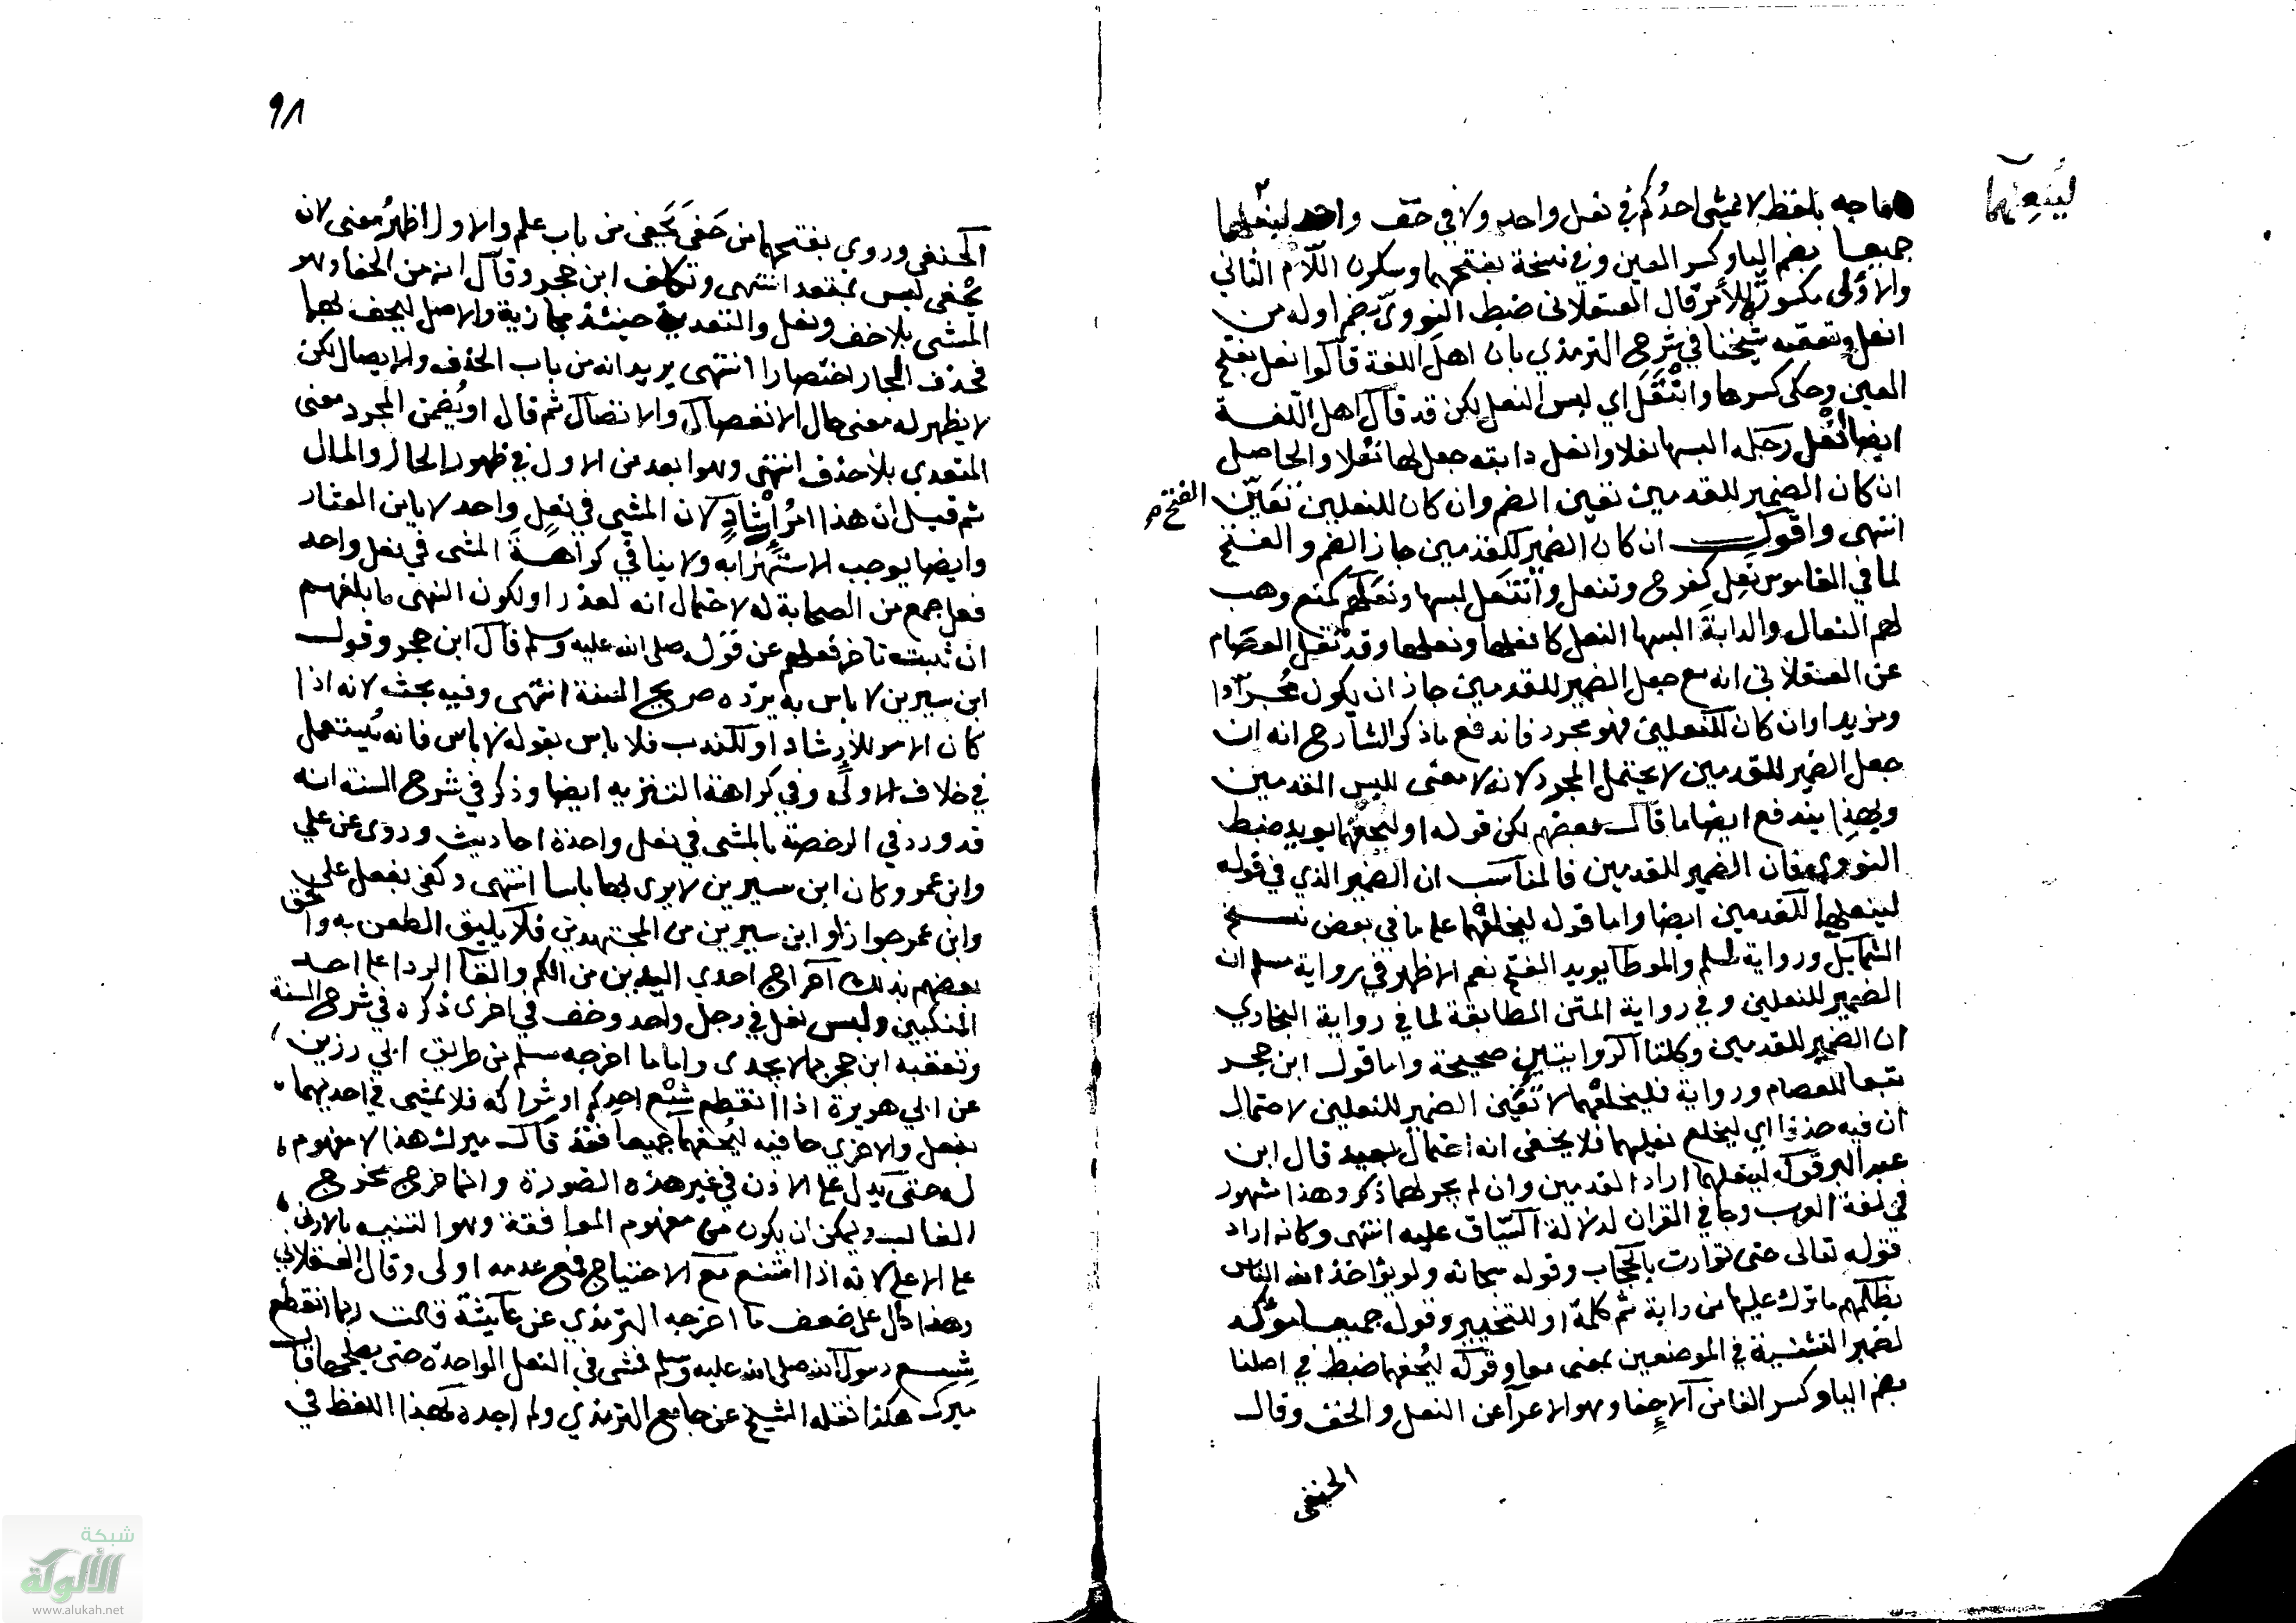 ماجه بلفظ لا يمشي احدُكم في نعل واحد ولا في خف واحد لينعلهما
لينعلهما
جميعا بضم اليا وكسر العين وفي نسخة بفتحهما وسكون اللام الثاني
والاولى مكسورة للامر قال العسقلاني ضبط النووي بضم اوله من
انعل وتعقبه شيخنا في شرح الترمذي بان اهل اللغة قالوا نعل بفتح
العين وحكى كسرها وانتعل اي لبس النعل لكن قد قال اهل اللغة
ايضا انعل رجله البسها نعلا وانعل دابته جعل لها نعلا والحاصل
ان كان الضمير للقدمين تعين الضم وان كان للنعلين تعين الفتح
انتهى واقول ان كان الضمير للقدمين جاز الضم والفتح
لما في القاموس نعِل كفرح وتنعل وانتعل لبسها ونعلهم كمنع وهب
لهم النعال والدابةَ البسها النعل كانعلها ونعلها وقد نقل العصام
عن العسقلاني انه مع جعل الضمير للقدمين جاز ان يكون مجردا
ومزيدا وان كان للنعلين فهو مجرد فاندفع ما ذكر الشارح انه ان
جعل الضمير للقدمين لا يحتمل المجرد لانه لا معنى للبس القدمين
وبهذا يندفع ايضا ما قال بعضهم لكن قوله او ليحفهما يويد ضبط
النووي فان الضمير للقدمين فالمناسب ان الضمير الذي في قوله
لينعلهما للقدمين ايضا واما قوله ليخلعهما على ما في بعض نسخ
الشمايل ورواية لمسلم والموطا يويد الفتح نعم الاظهر في رواية مسلم ان
الضمير للنعلين وفي رواية المتن المطابقة لما في رواية البخاري
ان الضمير للقدمين وكلتا الروايتين صحيحة واما قول ابن حجر
تبعا للعصام ورواية فليخلعهما لا تعين الضمير للنعلين لاحتمال
ان فيه حذفا اي ليخلع نعليهما فلا يخفى انه احتمال بعيد قال ابن
عبد البر قوله لينعلهما اراد القدمين وان لم يجر لهما ذكر وهذا مشهور
في لغة العرب وجا في القران لدلالة السياق عليه انتهى وكانه اراد
قوله تعالى حتى توارت بالحجاب وقوله سبحانه ولو يؤاخذ الله الناس
بظلمهم ما ترك عليها من دابة ثم كلمة او للتخيير وقوله جميعا مؤكد
لضمير التثنية في الموضعين بمعنى معا وقوله ليُحفهما ضبط في اصلنا
بضم اليا وكسر الفا من الاحفا وهو الاعرآ عن النعل والخف وقال
الحنفي
٩٨
الحنفي وروي بفتحهما من حَفي يَحفى من باب علم والاول اظهر معنى لان
يحفى ليس بمتعد انتهى وتكلف ابن حجر وقال انه من الحفا وهو
المشي بلا خف ونعل والتعدية حينئذ مجازية والاصل ليحف بهما
فحذف الجار اختصارا انتهى يريد انه من باب الحذف والايصال لكن
لا يظهر له معنى حال الانفصال والاتصال ثم قال او يُضمن المجرد معنى
المتعدي بلا حذف انتهى وهو ابعد من الاول في ظهور الحال والمال
ثم قيل ان هذا امر ارشاد لان المشي في نعل واحد لا يامن العثار
وايضا يوجب الاستهزا به ولا ينافي كراهة المشي في نعل واحد
فعل جمع من الصحابة له لاحتمال انه لعذر او لكون النهي ما بلغهم
ان ثبت تاخر فعلهم عن قوله صلى الله عليه وسلم قال ابن حجر وقول
ابن سيرين لا باس به يرده صريح السنة انتهى وفيه بحث لانه اذا
كان الامر للارشاد او للندب فلا باس بقوله لا باس فانه يُستعمل
في خلاف الاولى وفي كراهة التنزيه ايضا وذكر في شرح السنة انه
قد ورد في الرخصة بالمشي في نعل واحدة احاديث وروي عن علي
وابن عمر وكان ابن سيرين لا يرى بها باسا انتهى وكفى بفعل علي
وابن عمر جوازا وابن سيرين من المجتهدين فلا يليق الطعن به والحق
بعضهم بذلك اخراج احدي اليدين من الكم والقا الردا على احد
المنكبين ولبس نعل في رجل واحد وخف في اخرى ذكره في شرح السنة
وتعقبه ابن حجر بما لا يجدى واما ما اخرجه مسلم من طريق ابي رزين
عن ابي هريرة اذا انقطع شِسْع احدكم او شراكه فلا يمشي في احديهما
بنعل والاخرى حافيه ليُحفهما جميعا فقد قال ميرك هذا لا مفهوم
له حتى يدل على الاذن في غير هذه الصورة وانما خرج مخرج
الغالب ويمكن ان يكون من مفهوم الموافقة وهو التنبيه بالادنى
على الاعلى لانه اذا امتنع مع الاحتياج فمع عدمه اولى وقال العسقلاني
وهذا دال على ضعف ما اخرجه الترمذي عن عايشة قالت ربما انقطع
شسع رسول الله صلى الله عليه وسلم فمشى في النعل الواحدة حتى يصلحها قال
ميرك هكذا نقله الشيخ عن جامع الترمذي ولم اجده بهذا اللفظ في
شبكة
الألوكة
www.alukah.net